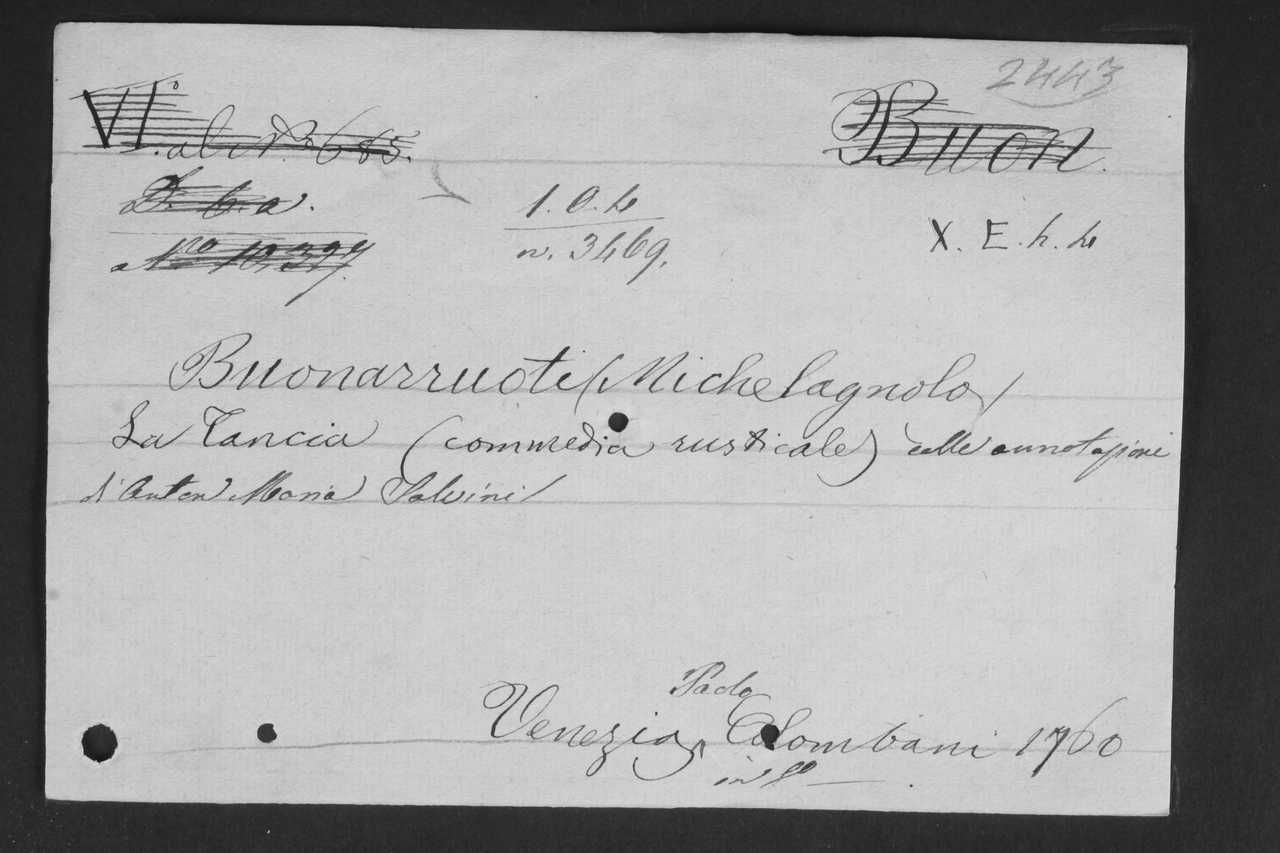 2443
VI.° al N.° 685.
Buon.
D. 6. a.
1. O. 4
X. E. h. 4
N.ro 10,397
n. 3469.
Buonarruoti (Michelagnolo)
La Tancia (commedia rusticale) colle annotazioni
d'Anton Maria Salvini
Paolo
Venezia, Colombani 1760
in 8°